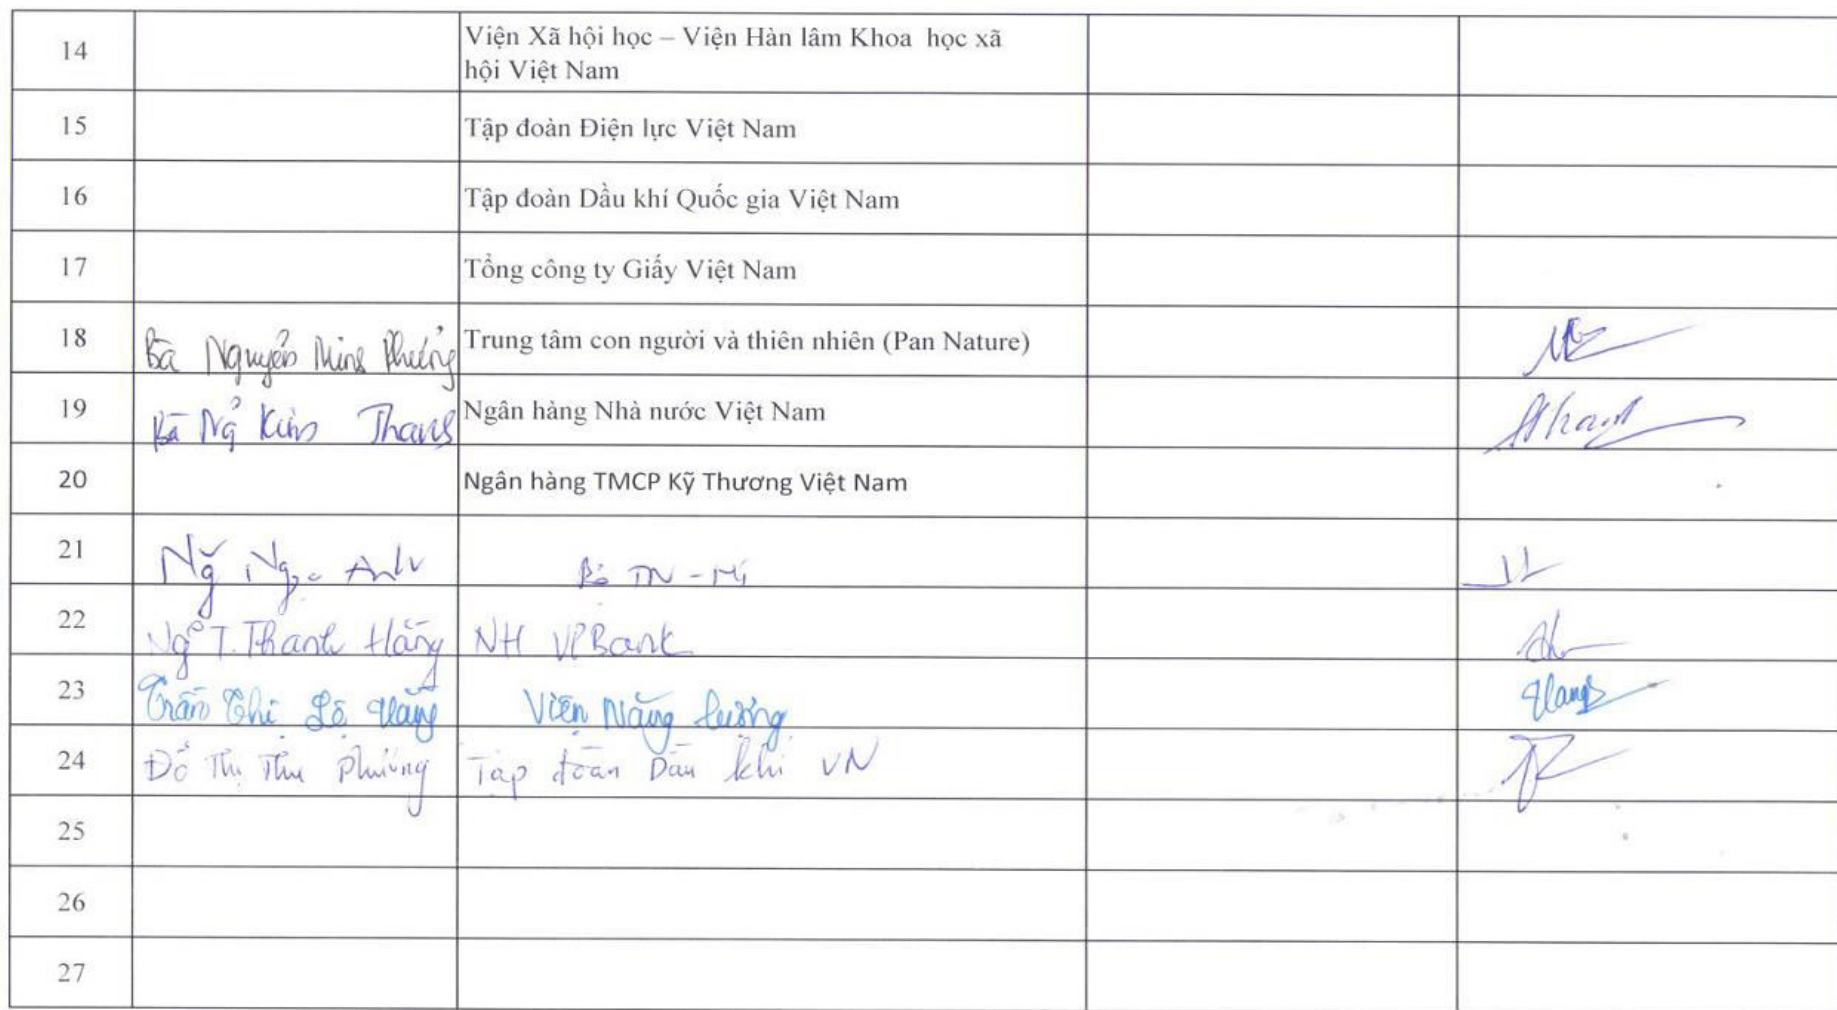 14 Viện Xã hội học – Viện Hàn lâm Khoa học xã
hội Việt Nam
15 Tập đoàn Điện lực Việt Nam
16 Tập đoàn Dầu khí Quốc gia Việt Nam
17 Tổng công ty Giấy Việt Nam
18 Bà Nguyễn Minh Phương Trung tâm con người và thiên nhiên (Pan Nature)
19 Bà Kim Ngân hàng Nhà nước Việt Nam
20 Ngân hàng TMCP Kỹ Thương Việt Nam
21 Ng̃ Ngọc Anh Bộ TN-MT
22 Ngô T. Thanh Hằng NH VPBank
23 Trần Thị Hằng Viện Năng lượng
24 Đỗ Thị Thu Phương Tập đoàn Dầu khí VN
25
26
27